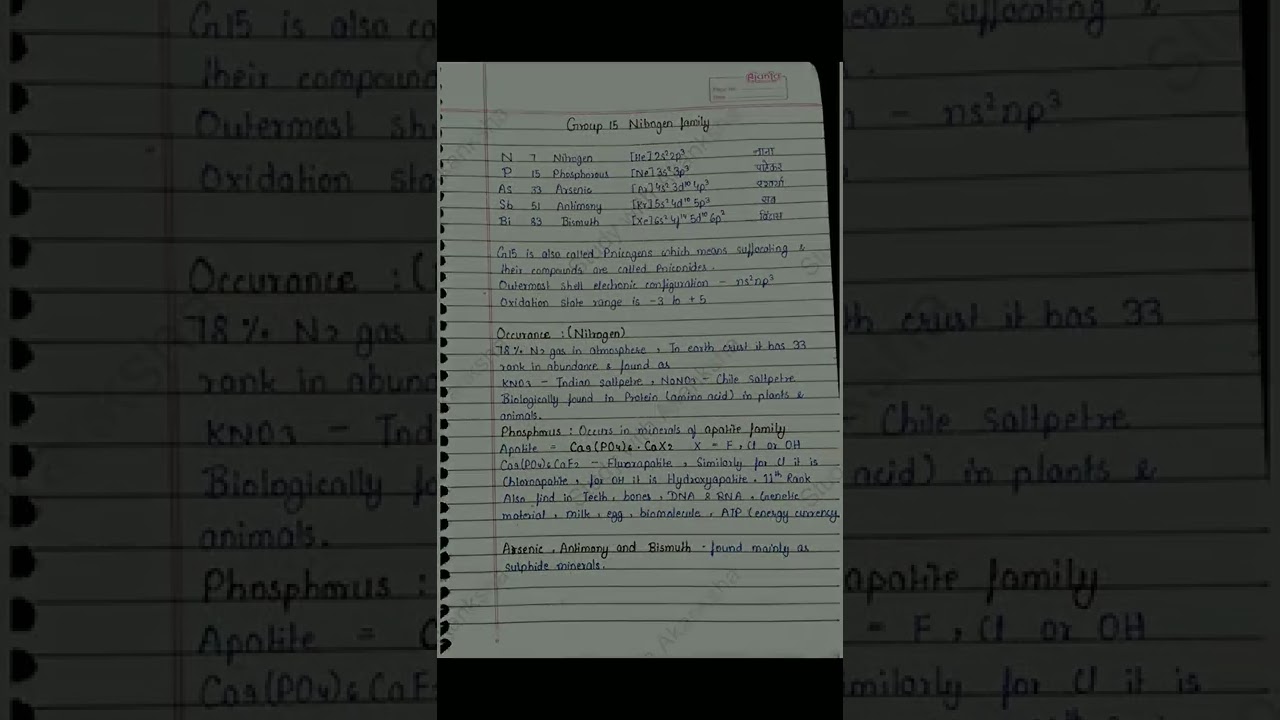 Group 15 Nitrogen family
N 7 Nitrogen [He]2s²2p³ नाना
P 15 Phosphorous [Ne]3s²3p³ पाटेकर
As 33 Arsenic [Ar]4s²3d¹⁰4p³
Sb 51 Antimony [Kr]5s²4d¹⁰5p³ सब
Bi 83 Bismuth [Xe]6s²4f¹⁴5d¹⁰6p³
G15 is also called Pnicogens which means suffocating &
their compounds are called Pniconides.
Outermost shell electronic configuration - ns²np³
Oxidation state range is -3 to +5
Occurance : (Nitrogen)
78% N2 gas in atmosphere, In earth crust it has 33
rank in abundance & found as
KNO3 - Indian saltpetre, NaNO3 - Chile saltpetre
Biologically found in Protein (amino acid) in plants &
animals.
Phosphorus : Occurs in minerals of apatite family
Apatite = Ca9(PO4)6.CaX2 X = F, Cl or OH
Ca9(PO4)6CaF2 - Fluorapatite, Similarly for Cl it is
Chlorapatite, for OH it is Hydroxyapatite. 11th Rank
Also find in Teeth, bones, DNA & RNA, Genetic
material, milk, egg, biomolecule, ATP (energy currency
Arsenic, Antimony and Bismuth - found mainly as
sulphide minerals.